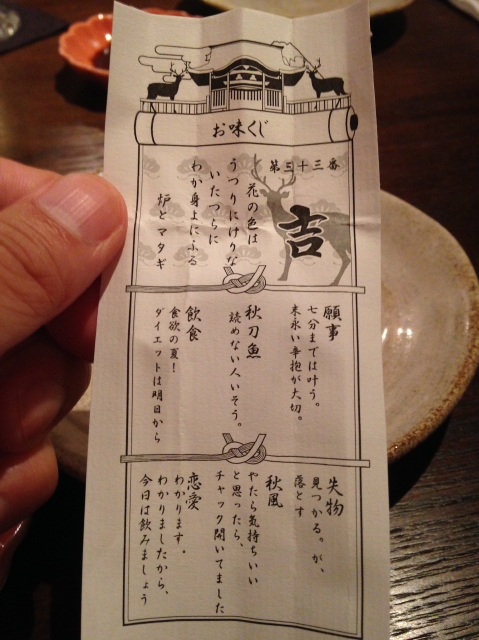 お味くじ
第三十三番
吉
花の色は
うつりにけりな
いたつらに
わか身よにふる
炉とマタギ
願事
七分までは叶う。
末永い辛抱が大切。
秋刀魚
読めない人いそう。
飲食
食欲の夏！
ダイエットは明日から
失物
見つかる。が、
落とす
秋風
やたら気持ちいい
と思ったら、
チャック開いてました
恋愛
わかります。
わかりましたから、
今日は飲みましょう